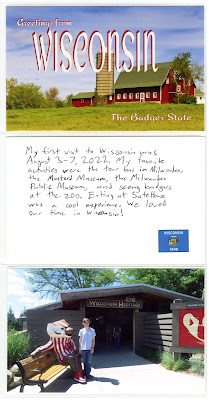 Greetings from
WISCONSIN
The Badger State
My first visit to Wisconsin was
August 3-7, 2022. My favorite
activities were the tour bus in Milwaukee,
the Mustard Museum, the Milwaukee
Public Museum, and seeing badgers
at the zoo. Eating at SafeHouse
was a cool experience. We loved
our time in Wisconsin!
WISCONSIN
1848
WISCONSIN HERITAGE